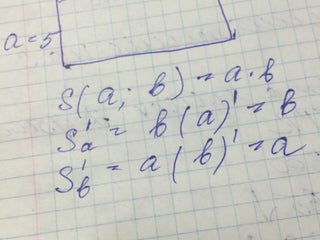 a = 5
S(a; b) = a · b
S'a = b(a)' = b
S'b = a(b)' = a